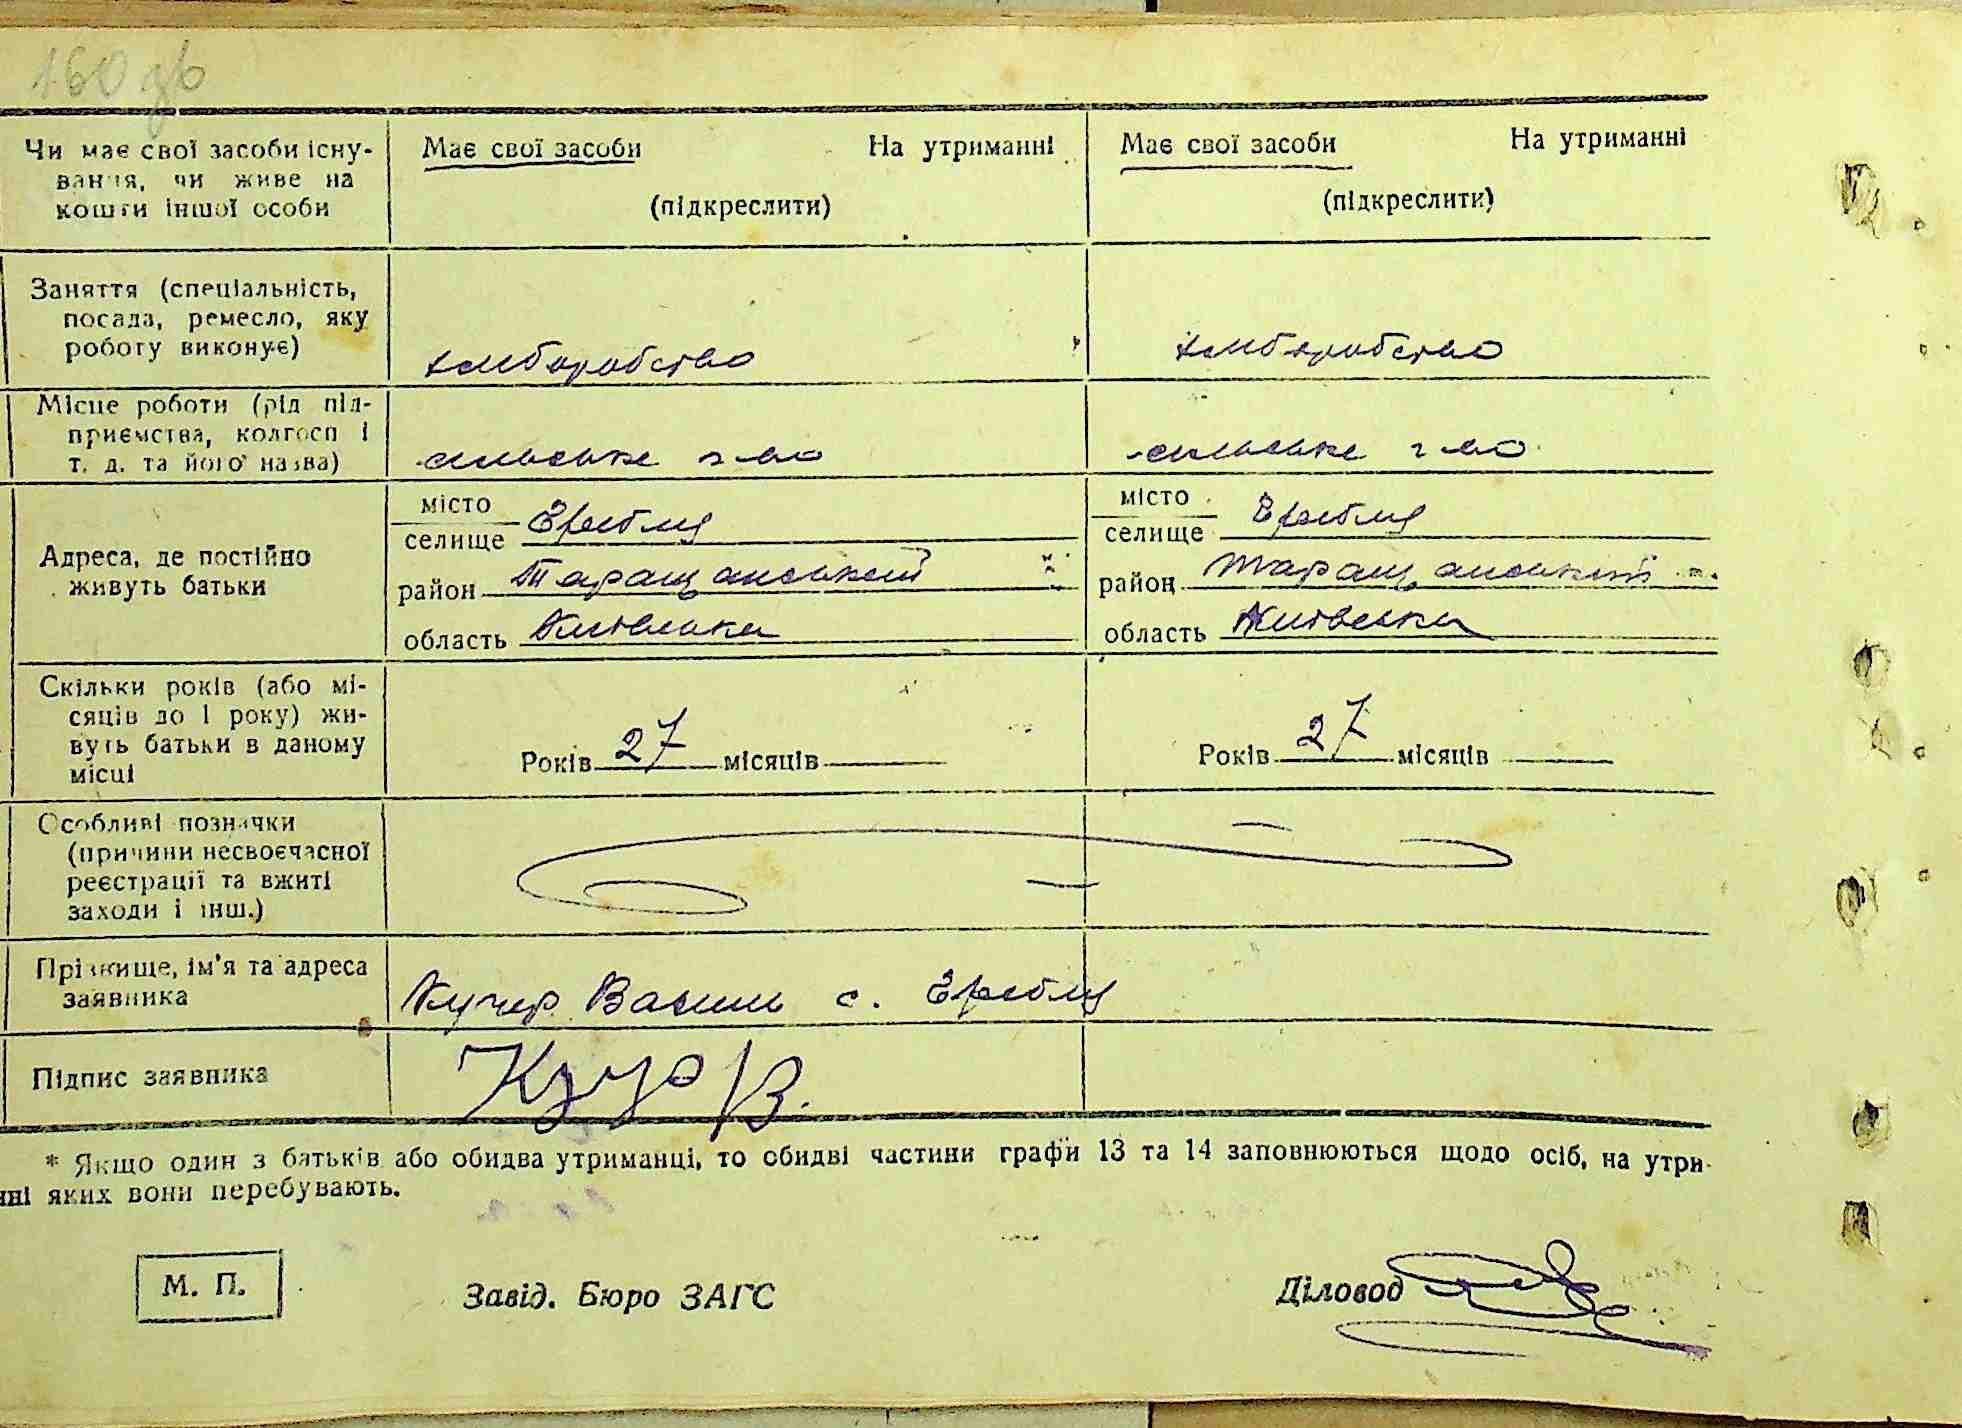 160 зв
Чи має свої засоби існу-
вання, чи живе на
кошти іншої особи
Має свої засоби На утриманні
(підкреслити)
Має свої засоби На утриманні
(підкреслити)
Заняття (спеціальність,
посада, ремесло, яку
роботу виконує)
хліборобство
хліборобство
Місце роботи (рід під-
приємства, колгосп і
т. д. та його назва)
сільське г-во
сільське г-во
Адреса, де постійно
живуть батьки
місто
селище Гребля
район Таращанський
область Київська
місто
селище Гребля
район Таращанський
область Київська
Скільки років (або мі-
сяців до 1 року) жи-
вуть батьки в даному
місці
Років 27 місяців
Років 27 місяців
Особливі позначки
(причини несвоєчасної
реєстрації та вжиті
заходи і інш.)
Прізвище, ім'я та адреса
заявника
Кучер Василь с. Гребля
Підпис заявника
* Якщо один з батьків або обидва утриманці, то обидві частини графи 13 та 14 заповнюються щодо осіб, на утри-
нні яких вони перебувають.
М. П.
Завід. Бюро ЗАГС
Діловод